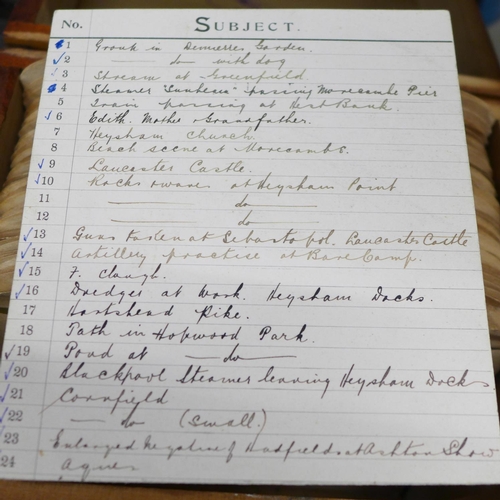 No. SUBJECT.
1 Group in Garden.
2 — do — with dog
3 Stream at Greenfield
4 Steamer "Sunbeam" passing Morecambe Pier
5 Train passing at Hest Bank.
6 Edith, Mother & Grandfather.
7 Heysham Church.
8 Beach scene at Morecambe.
9 Lancaster Castle.
10 Rocks & waves at Heysham Point
11 — do —
12 — do —
13 Guns taken at Sebastopol. Lancaster Castle
14 Artillery practise at Bare Camp.
15 F. Clough.
16 Dredger at work. Heysham Docks.
17 Hartshead Pike.
18 Path in Hopwood Park.
19 Pond at — do —
20 Blackpool Steamer leaving Heysham Docks
21 Cornfield
22 — do (small.)
23 Enlarged Negative of Hadfields at Ashton Show
24 Agnes